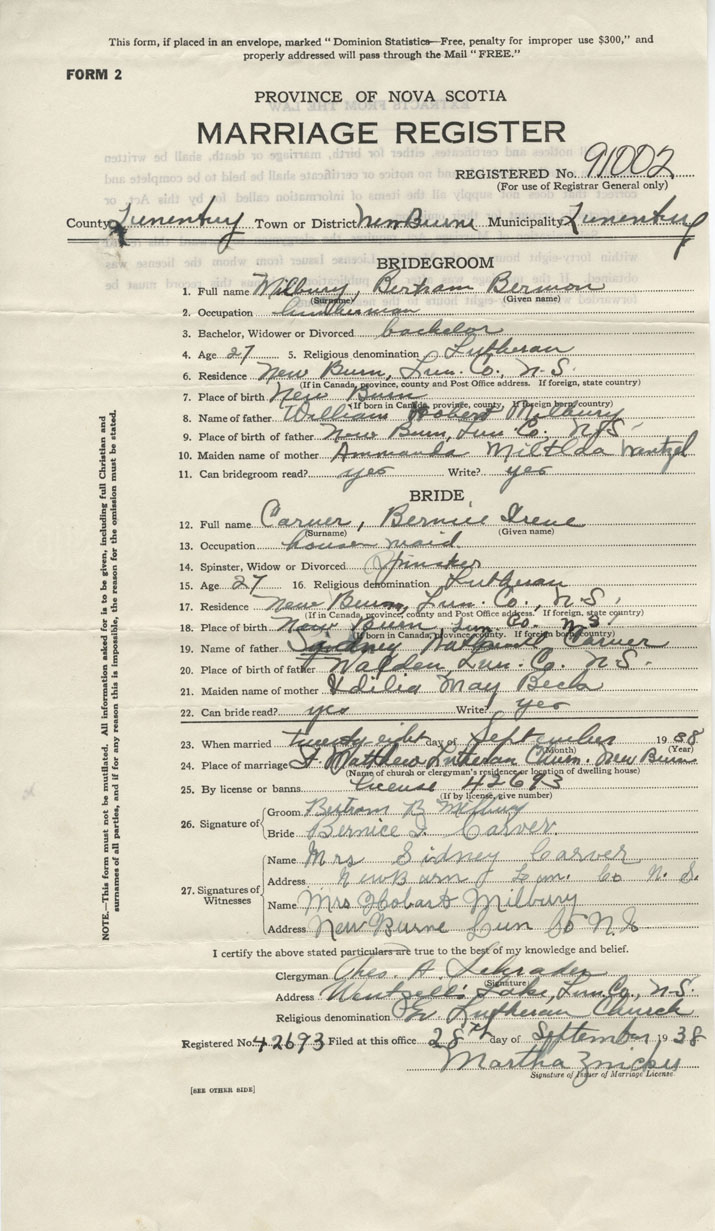 This form, if placed in an envelope, marked "Dominion Statistics—Free, penalty for improper use $300," and
properly addressed will pass through the Mail "FREE."
FORM 2
PROVINCE OF NOVA SCOTIA
MARRIAGE REGISTER
REGISTERED No. 91002
(For use of Registrar General only)
County Lunenburg Town or District New Burne Municipality Lunenburg
BRIDEGROOM
1. Full name Milbury, Bertram Bermon
(Surname) (Given name)
2. Occupation Lumberman
3. Bachelor, Widower or Divorced bachelor
4. Age 27 5. Religious denomination Lutheran
6. Residence New Burn, Lun. Co., N.S.
(If in Canada, province, county and Post Office address. If foreign, state country)
7. Place of birth New Burn
(If born in Canada, province, county. If foreign born, country)
8. Name of father William Hobert Milbury
9. Place of birth of father New Burn, Lun. Co. N.S.
10. Maiden name of mother Ammanda Miltlda Wentzel
11. Can bridegroom read? yes Write? yes
BRIDE
12. Full name Carver, Bernice Irene
(Surname) (Given name)
13. Occupation house maid
14. Spinster, Widow or Divorced Spinster
15. Age 27 16. Religious denomination Lutheran
17. Residence New Burn, Lun. Co., N.S.
(If in Canada, province, county and Post Office address. If foreign, state country)
18. Place of birth New Burn, Lun. Co. N.S.
(If born in Canada, province, county. If foreign born, country)
19. Name of father Sydney Carver
20. Place of birth of father Walden, Lun. Co. N.S.
21. Maiden name of mother Edilia May Beck
22. Can bride read? yes Write? yes
23. When married twenty eight day of September 1938
(Month) (Year)
24. Place of marriage St. Matthew Lutheran Church. New Burn
(Name of church or clergyman's residence or location of dwelling house)
25. By license or banns License 42693
(If by license, give number)
26. Signature of Groom Bertram B Milbury
Bride Bernice I. Carver.
27. Signatures of Witnesses Name Mrs Sidney Carver
Address New Barn Lun. Co N. S.
Name Mrs Hobart Milbury
Address New Burne Lun Co N.S
I certify the above stated particulars are true to the best of my knowledge and belief.
Clergyman Chas. A. Schrader
(Signature)
Address Wentzell's Lake, Lun. Co., N.S.
Religious denomination Ev. Lutheran Church
Registered No. 42693 Filed at this office 28th day of September 1938
Martha Zwicker
Signature of Issuer of Marriage License.
[SEE OTHER SIDE]
NOTE.—This form must not be mutilated. All information asked for is to be given, including full Christian and
surnames of all parties, and if for any reason this is impossible, the reason for the omission must be stated.